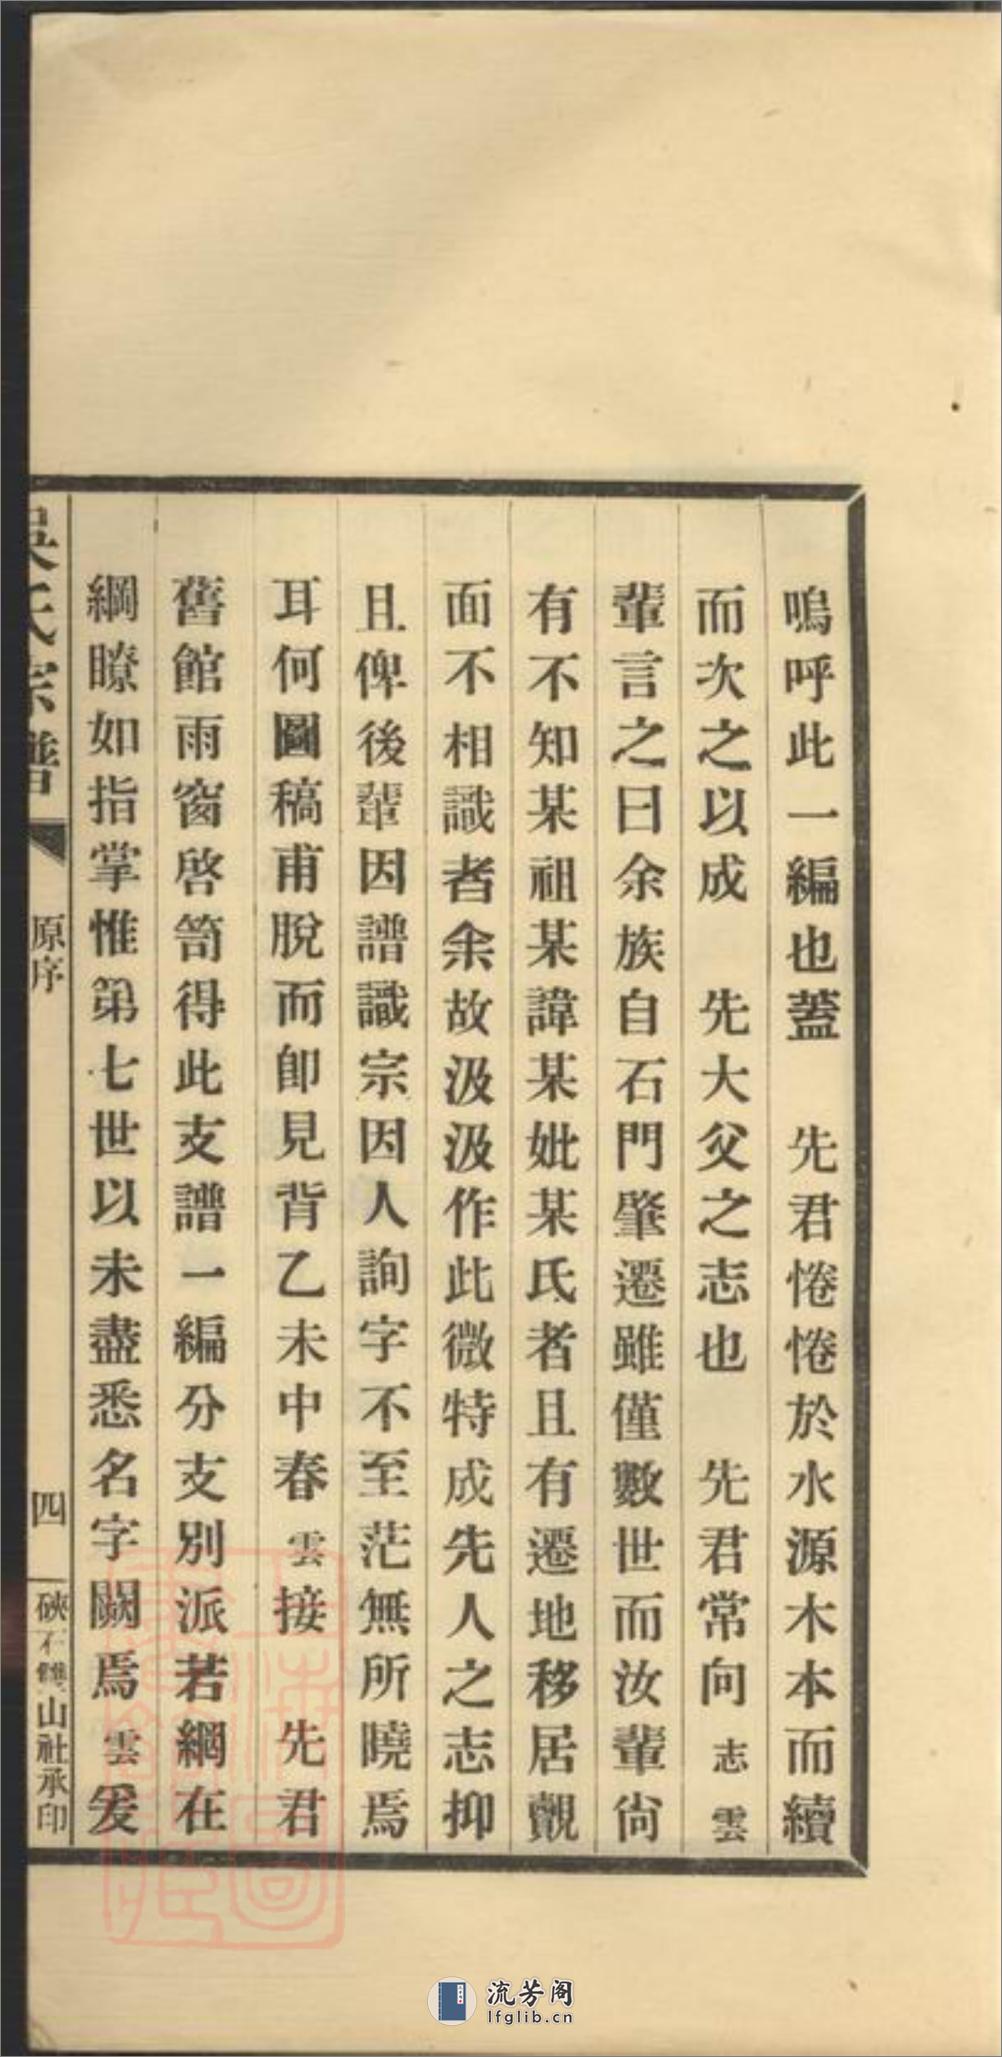 嗚呼此一編也蓋　先君惓惓於水源木本而續
而次之以成　先大父之志也　先君常向志雲
輩言之曰余族自石門肇遷雖僅數世而汝輩尙
有不知某祖某諱某妣某氏者且有遷地移居覿
面不相識者余故汲汲作此微特成先人之志抑
且俾後輩因譜識宗因人詢字不至茫無所曉焉
耳何圖稿甫脫而卽見背乙未中春雲接　先君
舊館雨窗啓笥得此支譜一編分支別派若網在
綱瞭如指掌惟第七世以未盡悉名字闕焉雲爰
吳氏宗譜
原序
四
硤石雙山社承印
流芳阁
lfglib.cn